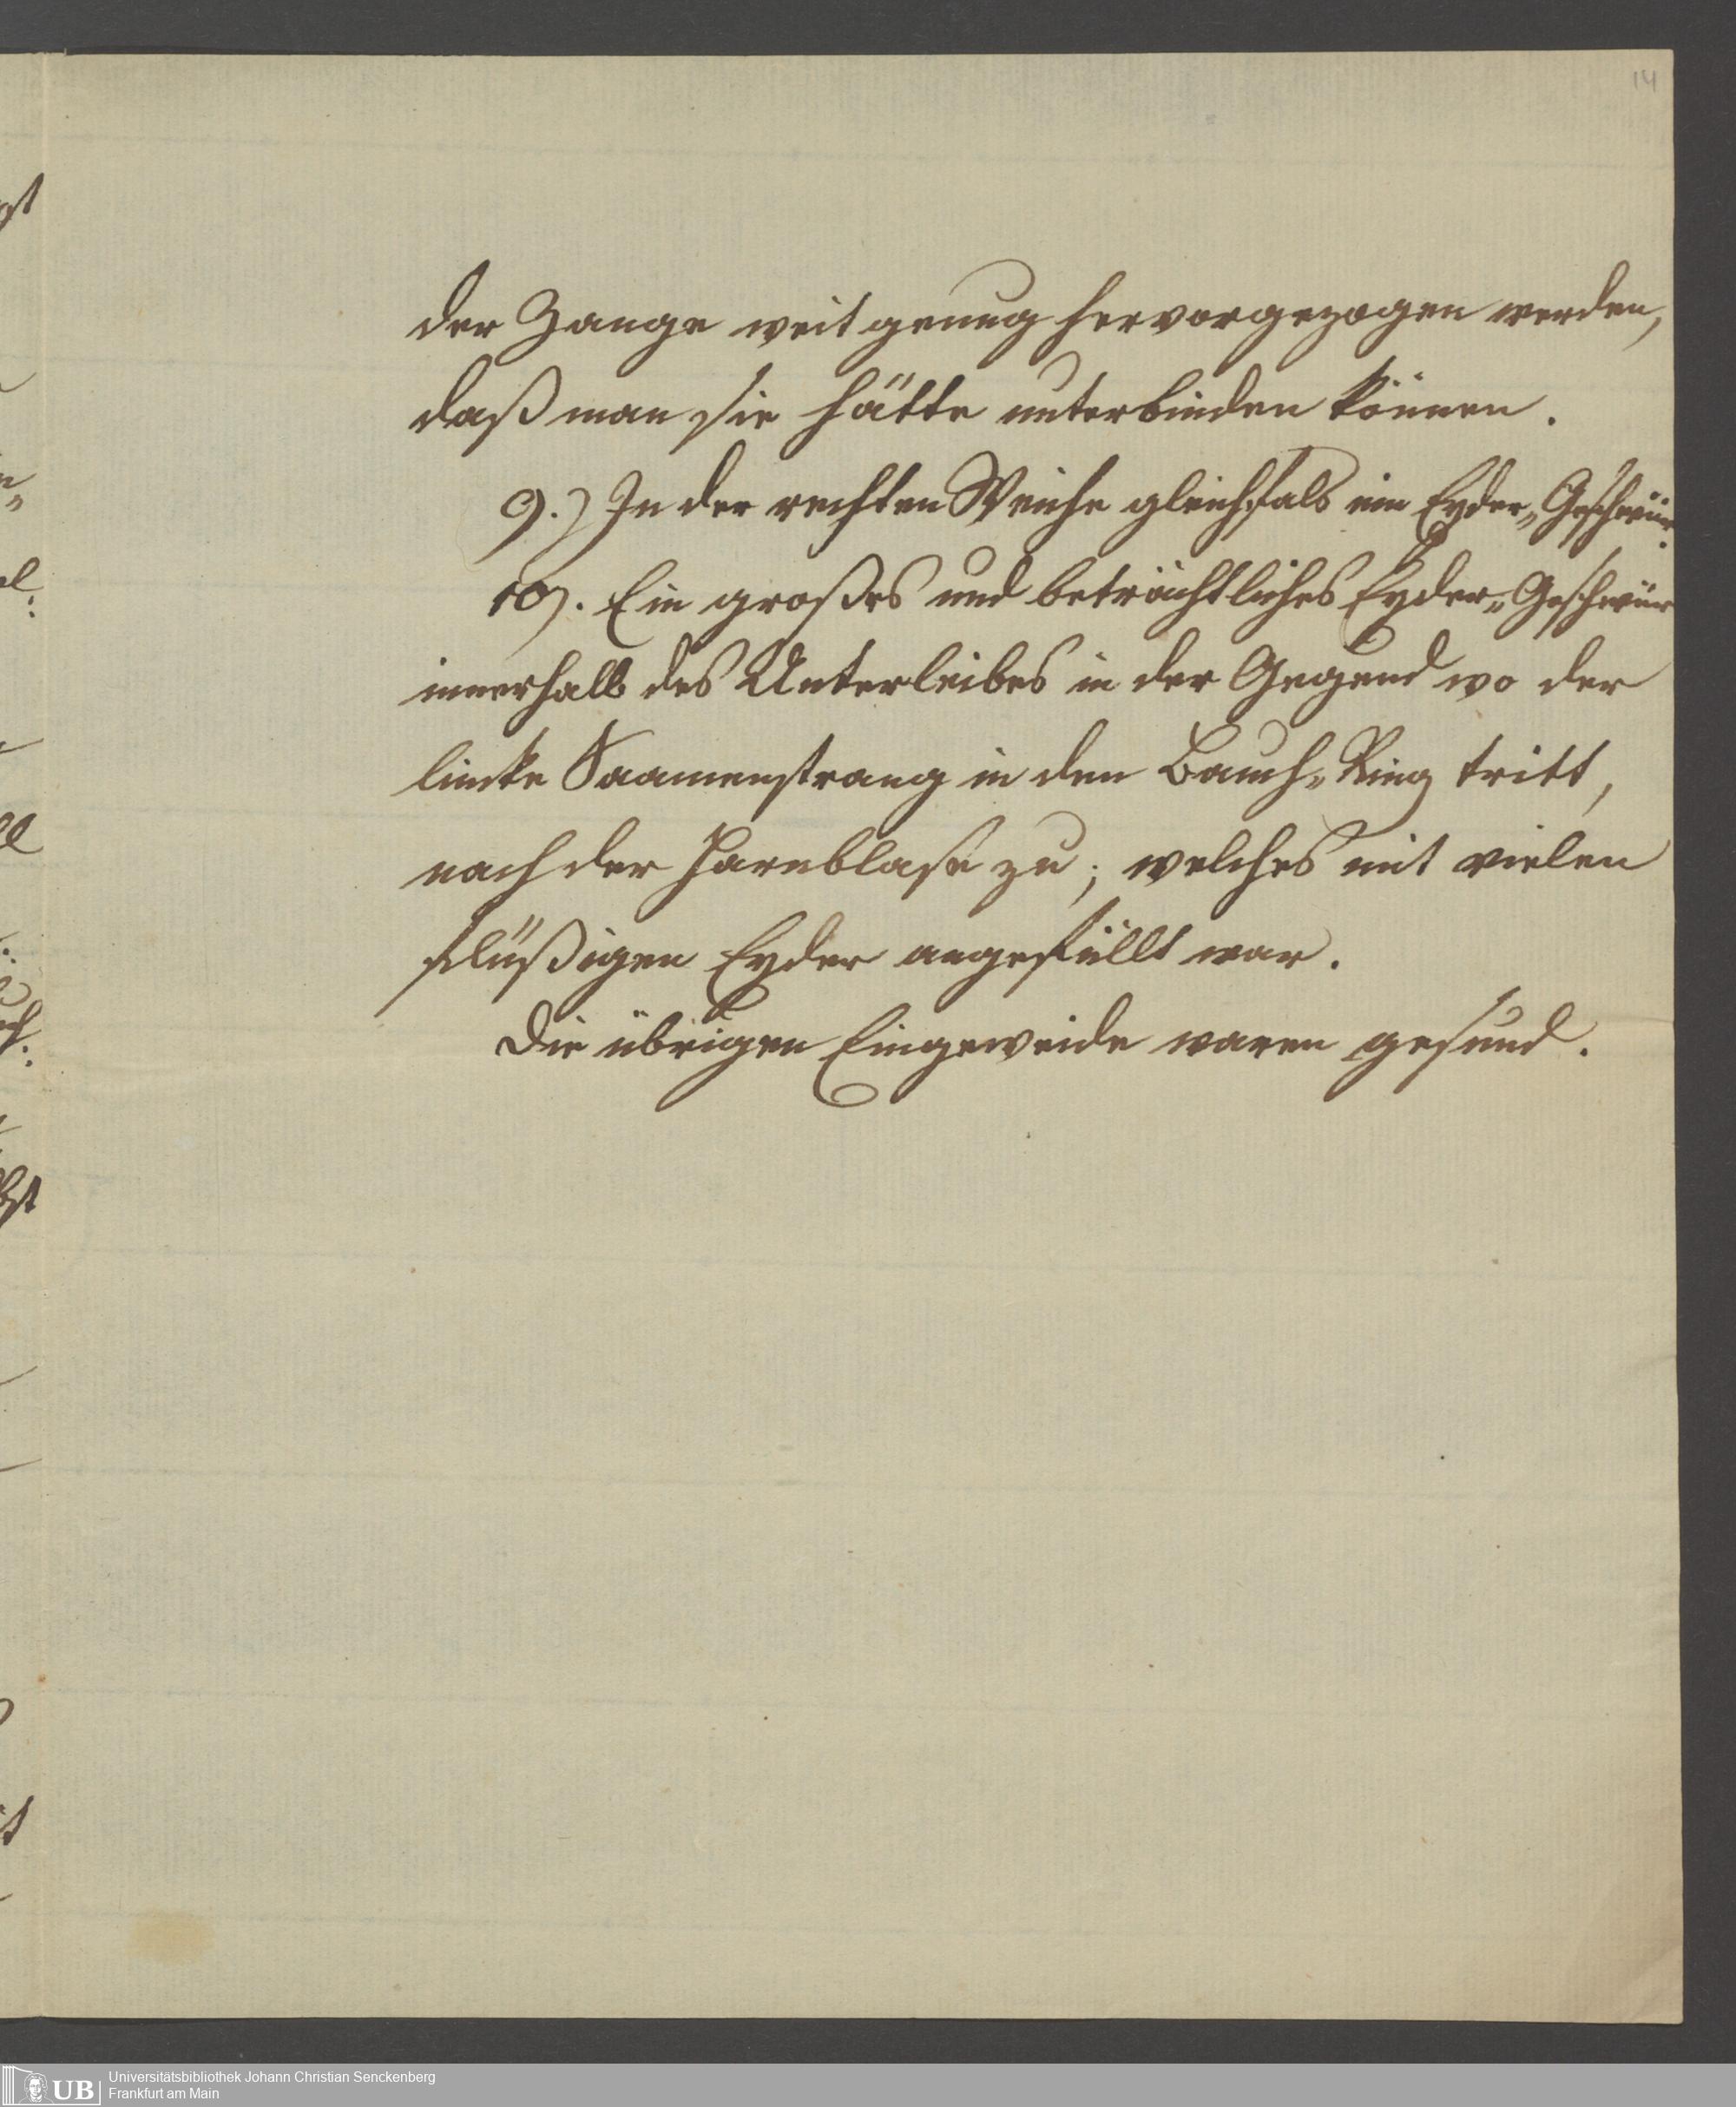 14
der Zange weit genug hervorgezogen werden,
daß man sie hätte unterbinden können.
9.) In der rechten Weiche gleichfals ein Eyder„Geschwür.
10). Ein großes und beträchtliches Eyder„Geschwür
innerhalb des Unterleibes in der Gegend wo der
lincke Saamenstrang in den Bauch„Ring tritt,
nach der Harnblase zu; welches mit vielen
flüßigen Eyder angefüllt war.
Die übrigen Eingeweide waren gesund.
UB
Universitätsbibliothek Johann Christian Senckenberg
Frankfurt am Main